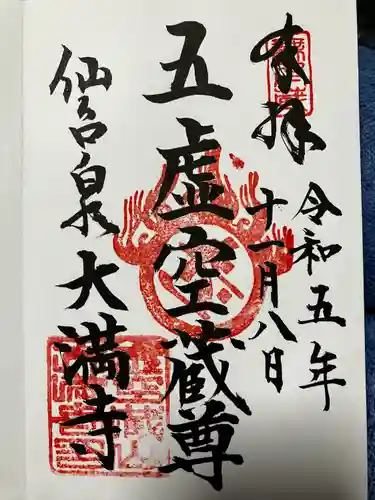 奉拝
令和五年
十一月八日
五虚空蔵尊
仙台泉大満寺